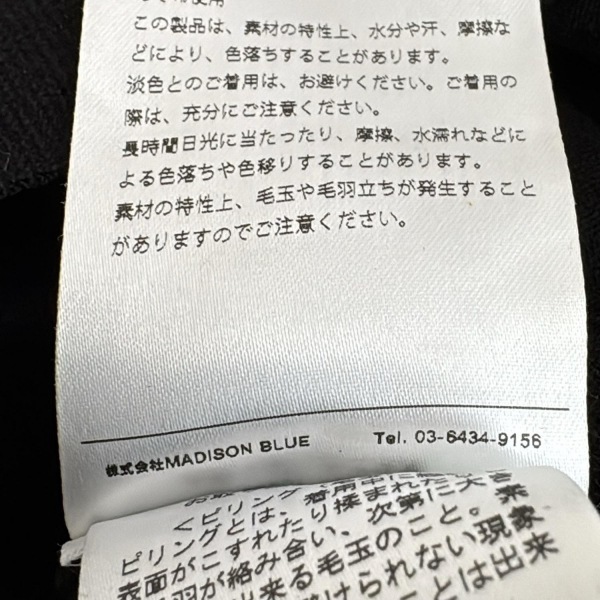 この製品は、素材の特性上、水分や汗、摩擦な
どにより、色落ちすることがあります。
淡色とのご着用は、お避けください。ご着用の
際は、充分にご注意ください。
長時間日光に当たったり、摩擦、水濡れなどに
よる色落ちや色移りすることがあります。
素材の特性上、毛玉や毛羽立ちが発生すること
がありますのでご注意ください。
株式会社MADISON BLUE Tel. 03-6434-9156
<ピリング
ピリングとは、着用中に
表面がこすれたり揉まれた
羽が絡み合い、次第に大き
出来る毛玉のこと。素
けられない現象
とは出来